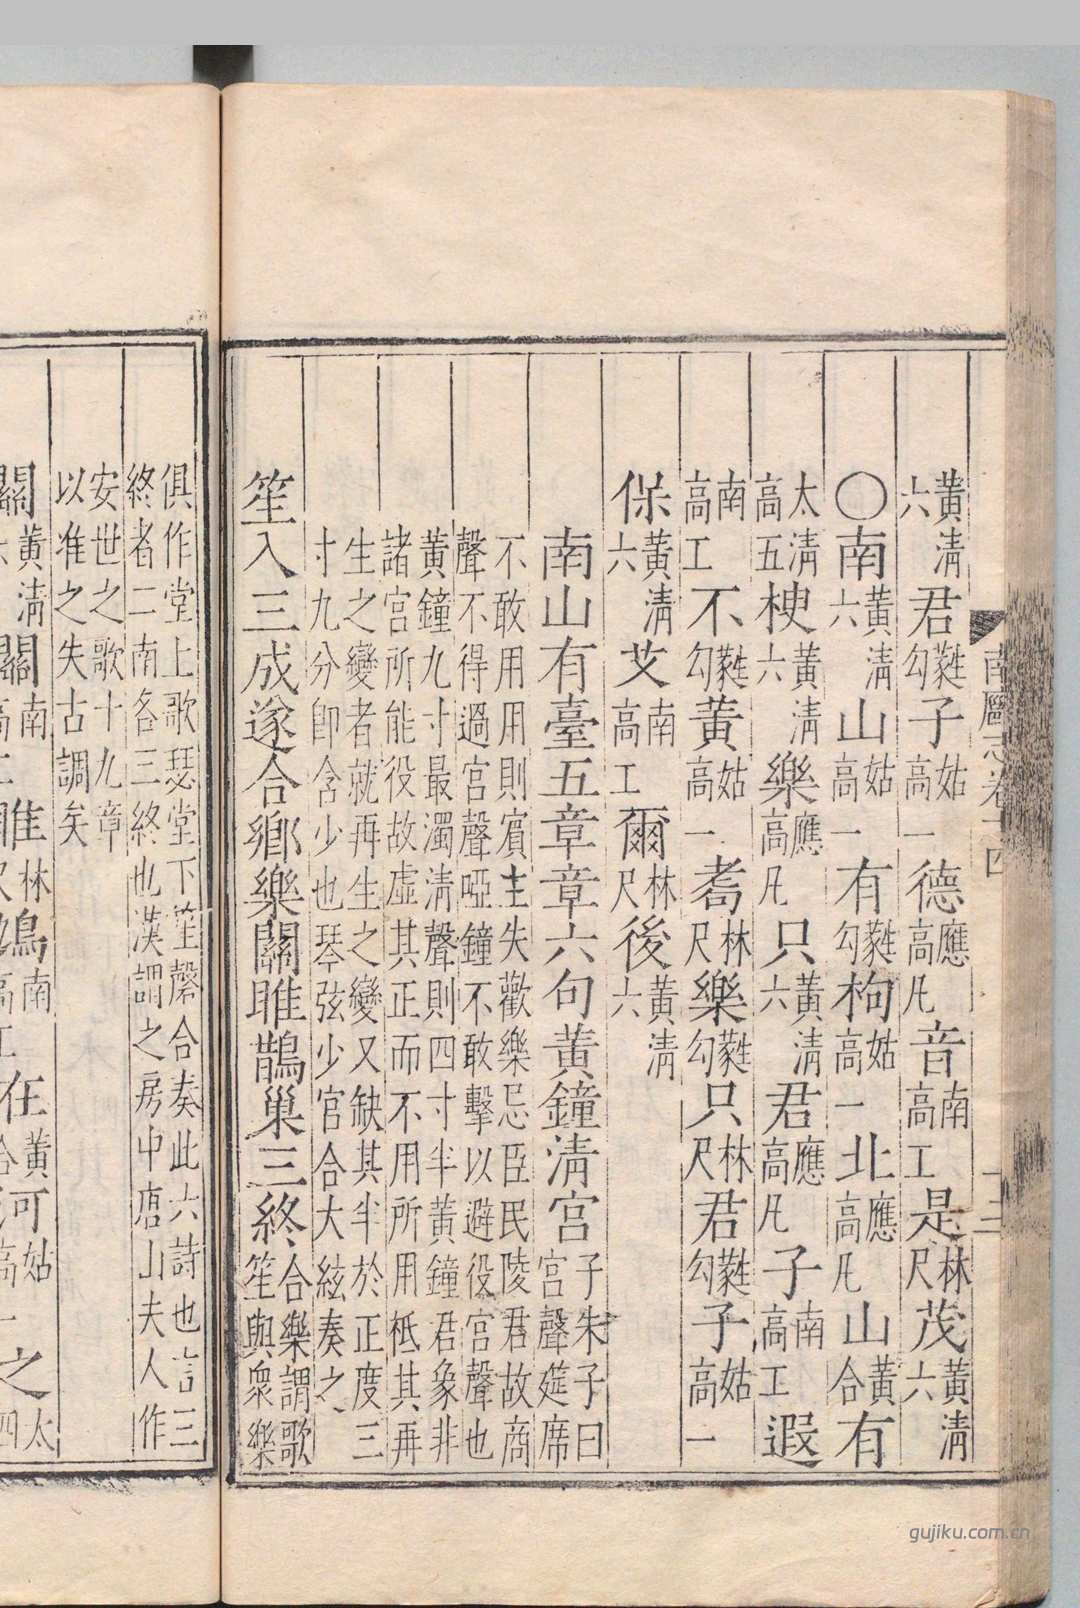 南廱志卷十四 十三
黃清六君蕤勾子姑高一德應高凡音南高工是林尺茂黃清六
○南黃清六山姑高一有蕤勾枸姑高一北應高凡山黃合有
太清高五楰黃清六樂應高凡只黃清六君應高凡子南高工遐
南高工不蕤勾黃姑高一耇林尺樂蕤勾只林尺君蕤勾子姑高一
保黃清六艾南高工爾林尺後黃清六
南山有臺五章章六句黃鐘清宮子朱子曰
宮聲筵席
不敢用用則賓主失歡樂忌臣民陵君故商
聲不得過宮聲啞鐘不敢擊以避役宮聲也
黃鐘九寸最濁清聲則四寸半黃鐘君象非
諸宮所能役故虛其正而不用所用柢其再
生之變者就再生之變又缺其半於正度三
寸九分卽含少也琴弦少宮合大絃奏之
笙入三成遂合鄉樂關雎鵲巢三終合樂謂歌
笙與衆樂
俱作堂上歌瑟堂下笙磬合奏此六詩也言三
終者二南各三終也漢謂之房中唐山夫人作
安世之歌十九章
以准之失古調矣
關黃清六關南高工雎林尺鳩南高工在黃合河姑高一之太四
gujiku.com.cn